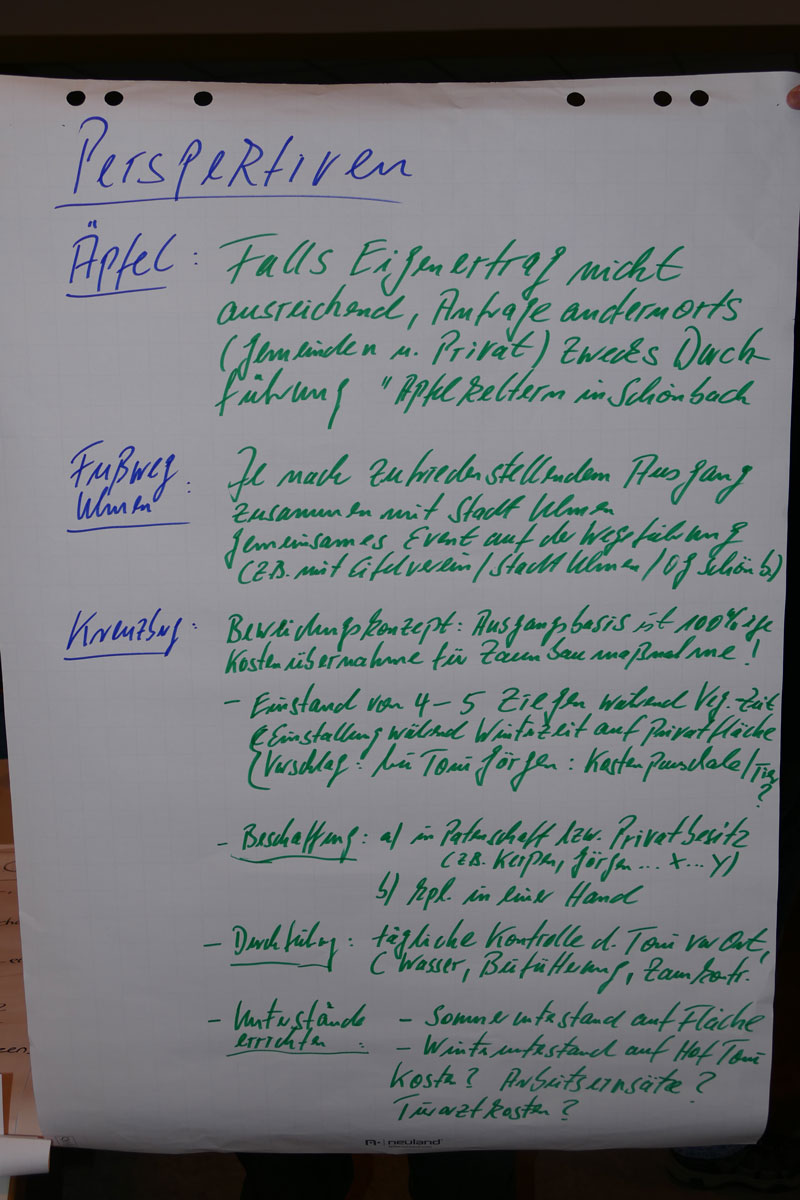 Perspektiven
Äpfel : Falls Eigenertrag nicht
ausreichend, Anfrage andernorts
(Gemeinden u. Privat) zwecks Durch-
führung "Äpfel keltern in Schönbach
Fußweg Ulmen : Je nach zufriedenstellendem Ausgang
zusammen mit Stadt Ulmen
gemeinsames Event auf der Wegeführung
(z.B. mit Eifelverein / Stadt Ulmen / OG Schönb.)
Kreuzbg : Beweidungskonzept: Ausgangsbasis ist 100%ige
Kostenübernahme für Zaunbaumaßnahme!
- Einstand von 4-5 Ziegen während Veg.-Zeit
(Einstallung während Winterzeit auf Privatfläche
(Vorschlag: bei Toni Jörgen: Kostenpauschale/Tier
?
- Beschaffung : a) in Patenschaft bzw. Privatbesitz
(z.B. Kerpen, Jörgen ... X ... Y)
b) kpl. in einer Hand
- Durchführung : tägliche Kontrolle d. Toni vor Ort,
(Wasser, Beifütterung, Zaunkontr.
- Unterstände - Sommerunterstand auf Fläche
errichten : - Winterunterstand auf Hof Toni
Kosten? Arbeitseinsätze?
Tierarztkosten?
neuland